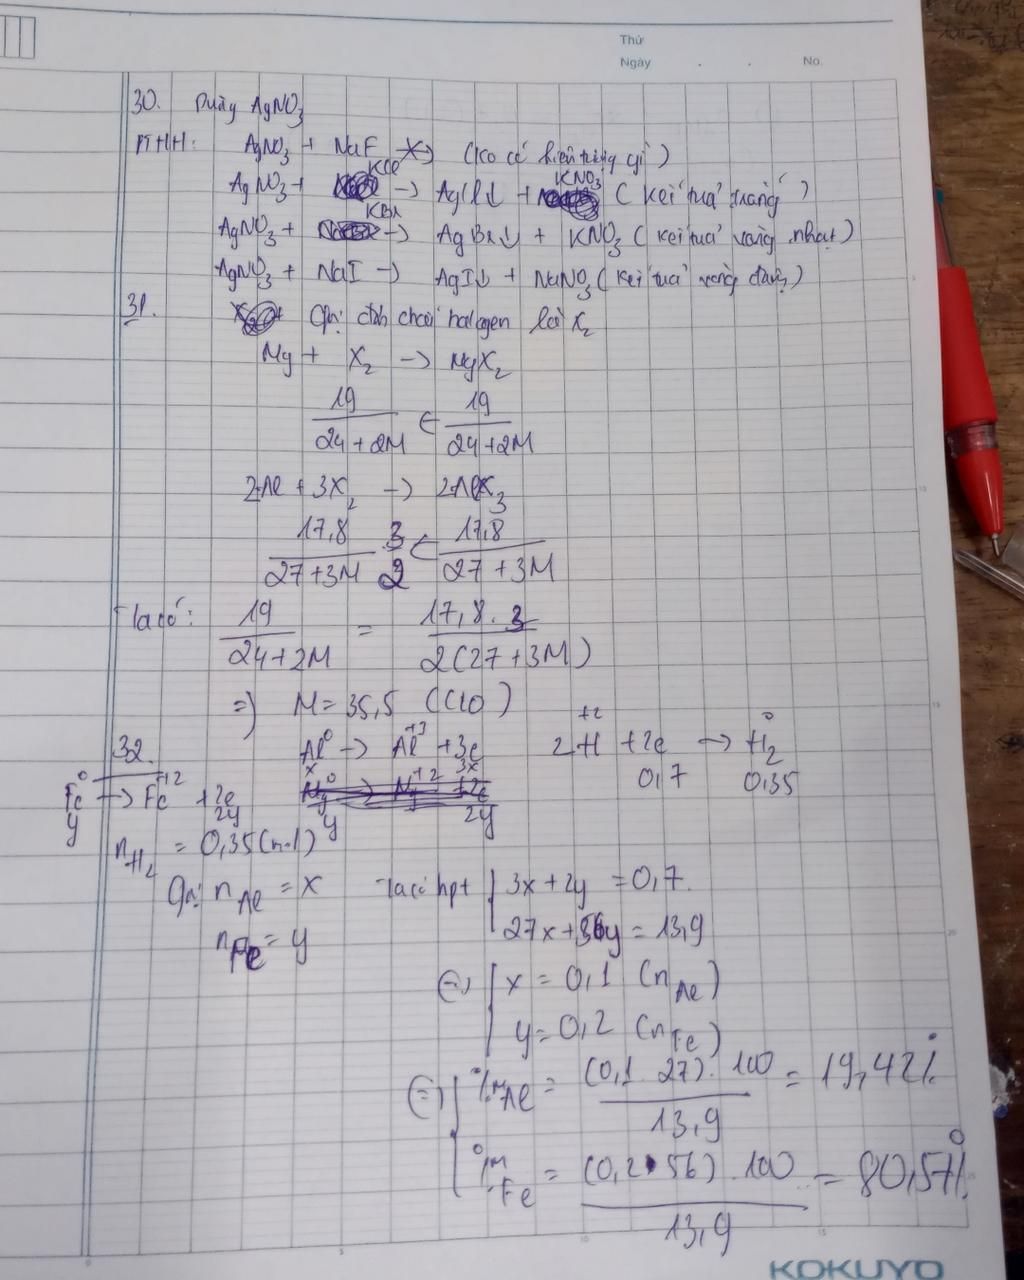 Thứ
Ngày . . No.
30. Dùng AgNO3
PTHH: AgNO3 + NaF -X-> (ko có hiện tượng gì)
AgNO3 + KCl -> AgCl↓ + KNO3 (kết tủa trắng)
AgNO3 + KBr -> AgBr↓ + KNO3 (kết tủa vàng nhạt)
AgNO3 + NaI -> AgI↓ + NaNO3 (kết tủa vàng đậm)
31. Gọi đơn chất halogen là X2
Mg + X2 -> MgX2
19/(24+2M) ← 19/(24+2M)
2Al + 3X2 -> 2AlX3
17,8/(27+3M) . 3/2 ← 17,8/(27+3M)
Ta có: 19/(24+2M) = (17,8 . 3)/(2(27+3M))
=> M = 35,5 (Clo)
32. Al⁰ -> Al⁺³ + 3e 2H⁺² + 2e -> H2⁰
x 3x 0,7 0,35
Fe⁰ -> Fe⁺² + 2e
y 2y
y 2y
nH2 = 0,35 (mol)
Gọi nAl = x Ta có hpt { 3x + 2y = 0,7
nFe = y 27x + 56y = 13,9
(=) { x = 0,1 (nAl)
y = 0,2 (nFe)
(=) { %mAl = ((0,1 . 27) . 100)/13,9 = 19,42%
%mFe = ((0,2 . 56) . 100)/13,9 = 80,57%
0 5 10 15
KOKUYO